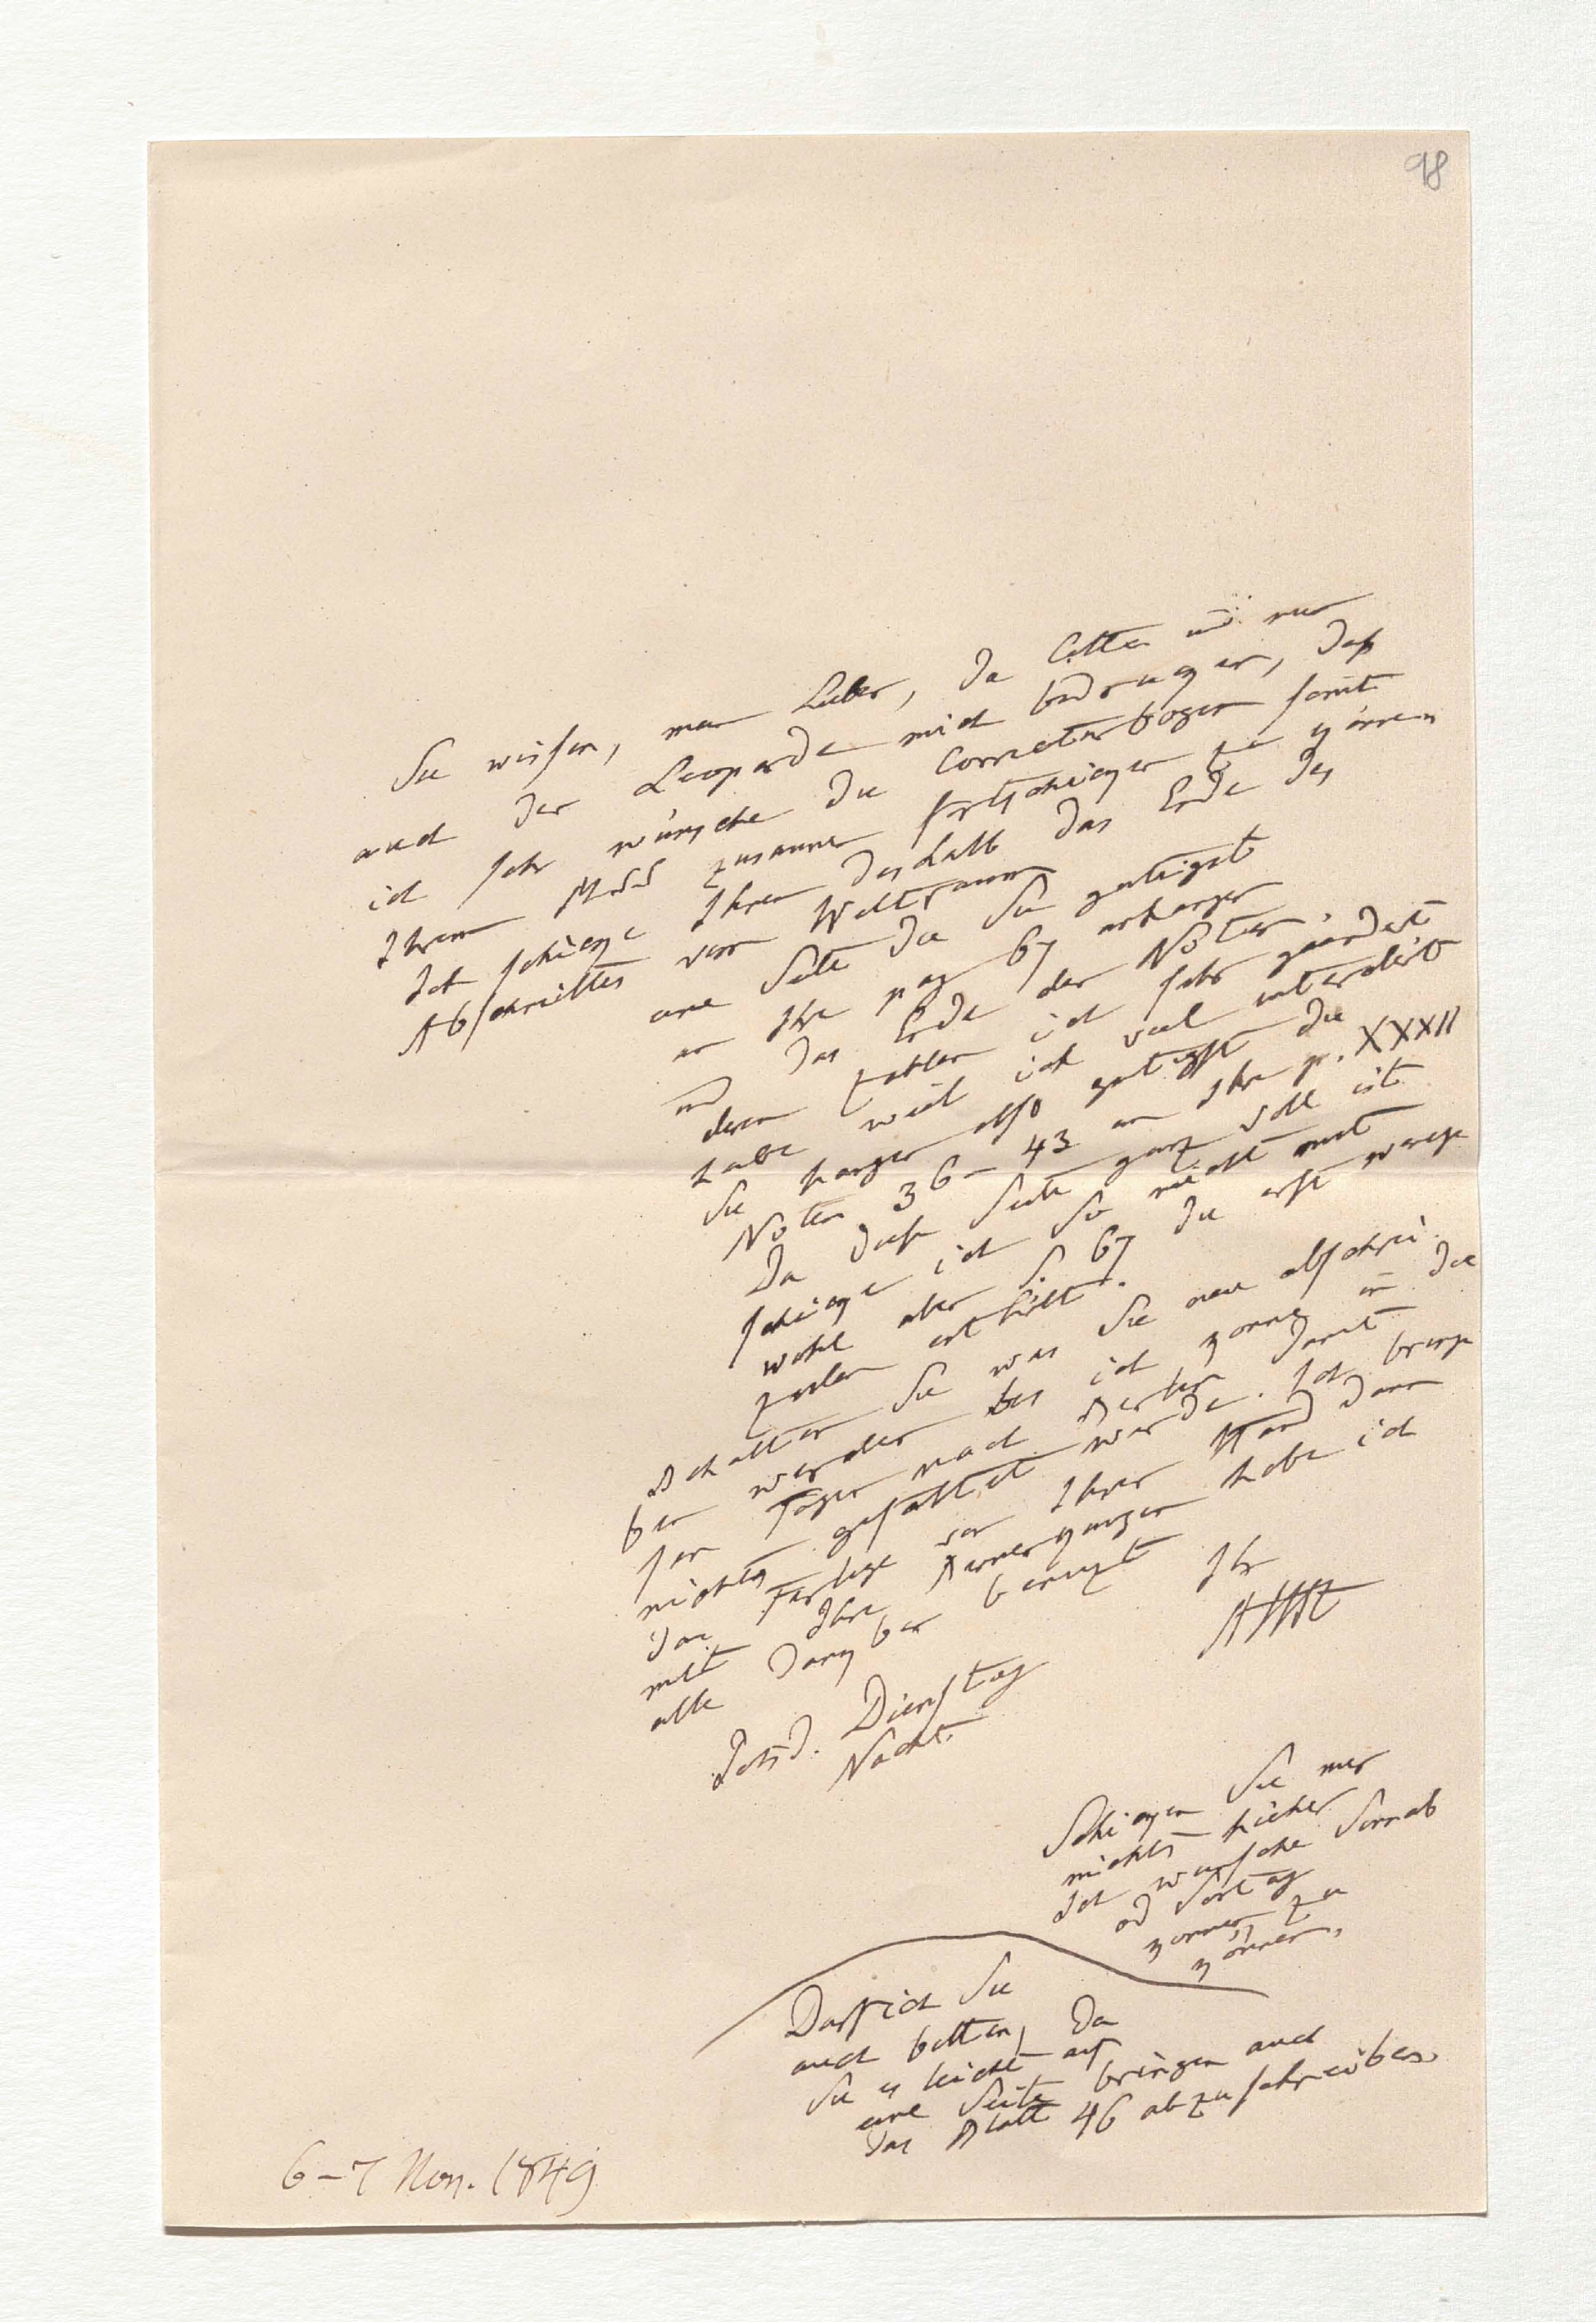 98
Sie wissen, mein Lieber, da Cotta und nun
auch der Leoparde mich bedrängen, daß
ich sehr wünsche die Correcturbogen samt
Ihrem Mss zusammen fortschicken zu können
Ich schicke Ihnen deshalb das Ende des
Abschnittes vom Weltraum
eine Seite die Sie gütigst
an Ihre pag 67 anhängen
und das Ende der Noten,
deren Zahlen ich sehr geändert
habe weil ich viel interdict
Sie hängen also gütigst die
Noten 36–43 an Ihre p. XXXII
Da diese Seite ganz voll ist
schicke ich Sie nicht mit
wohl aber S. 67 die erst wenige
Zeilen enthält.
Behalten Sie was Sie neu abschrei
ben werden bis ich komme in die
sen Tagen nach Berlin damit
nichts gefaltet werde. Ich bringe
das Fertige von Ihrer Hand dann
mit Ihre Bemerkungen habe ich
alle dankbar benuzt
Ihr
AHt
Potsd. Dienstag
Nacht
Schicken Sie mir
nichts hieher
Ich wünsche Sonnab
od Sontag
kommen zu
können,
Darf ich Sie
auch bitten, da
Sie es leicht auf
eine Seite bringen auch
das Blatt 46 abzuschreiben
6–7 Nov. 1849